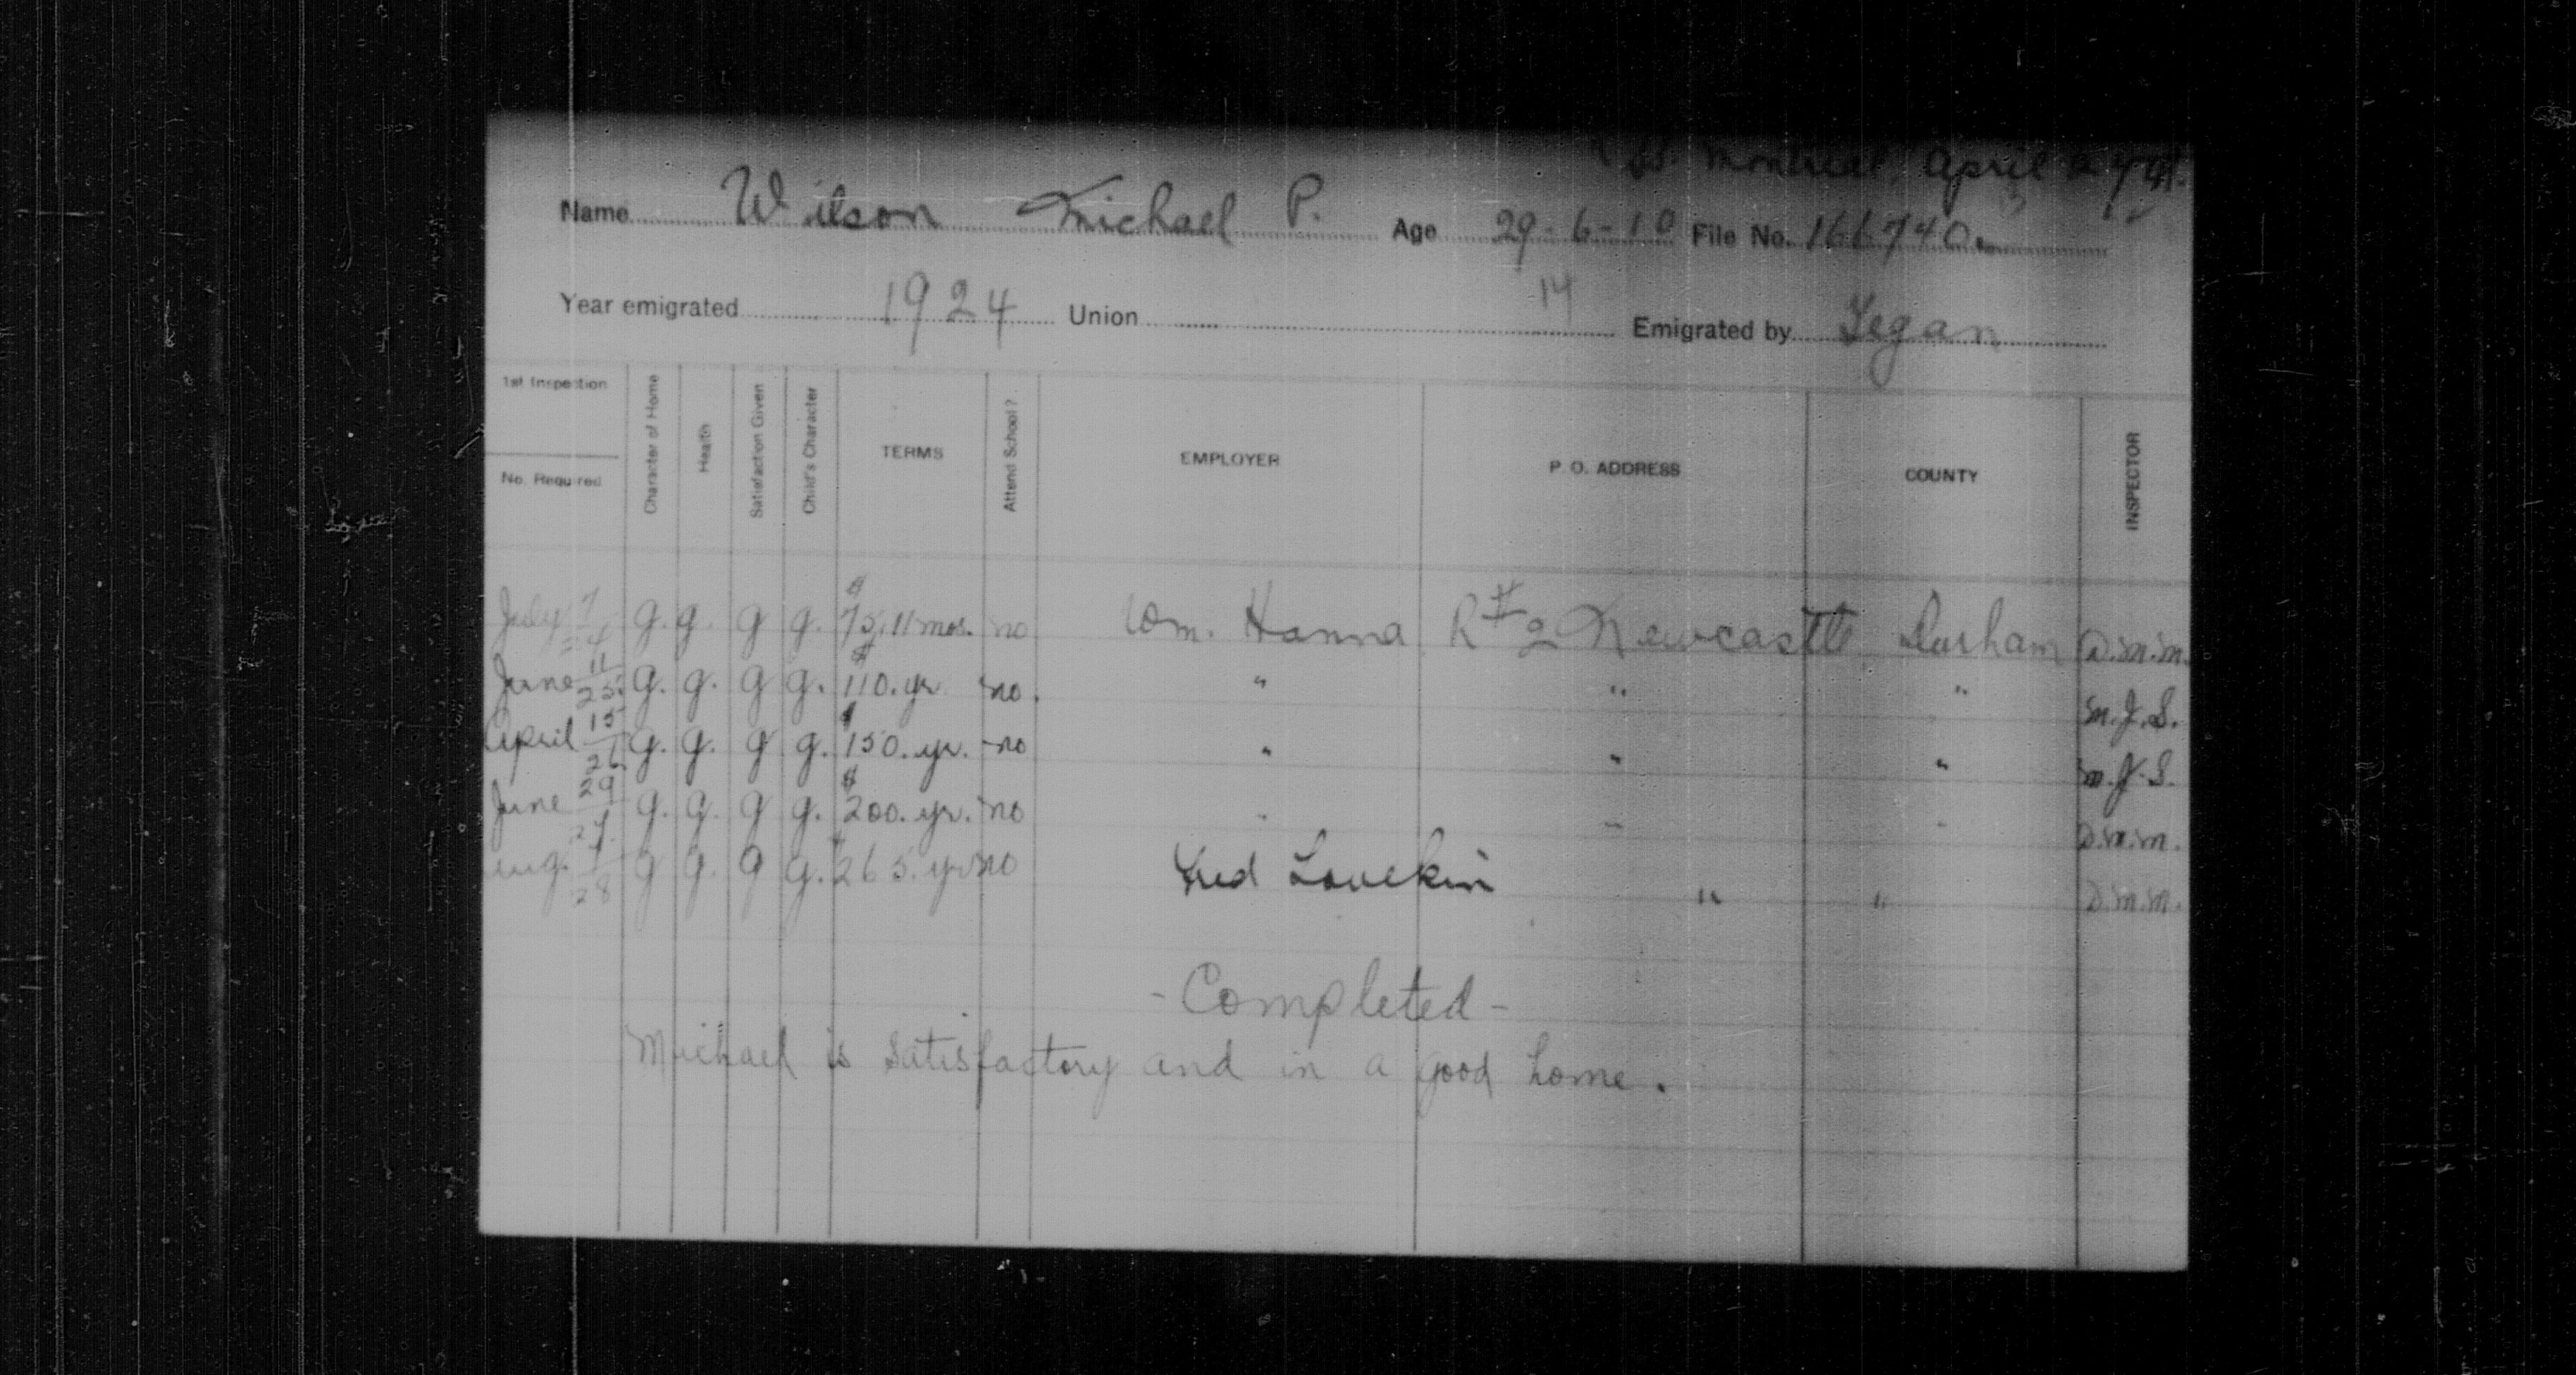 SS. Montreal, April 2/24.
Name Wilson Michael P. Age 29-6-10 File No. 166740.
Year emigrated 1924 Union 14 Emigrated by Fegan
1st Inspection
No. Required
Character of Home
Health
Satisfaction Given
Child's Character
TERMS
Attend School?
EMPLOYER
P. O. ADDRESS
COUNTY
INSPECTOR
July 7/24 g. g. g g. $75. 11 mos. no Wm. Hanna R#2 Newcastle Durham D.M.M.
June 11/25. g. g. g g. $110. yr no. " " " M.J.S.
April 15/26 g. g. g g. $150. yr. no " " " M.J.S.
June 29/27. g. g. g g. $200. yr. no " " " D.M.M.
Aug. 7/28 g g. g g. $265. yr no Fred Lovekin " " D.M.M.
- Completed -
Michael is satisfactory and in a good home.